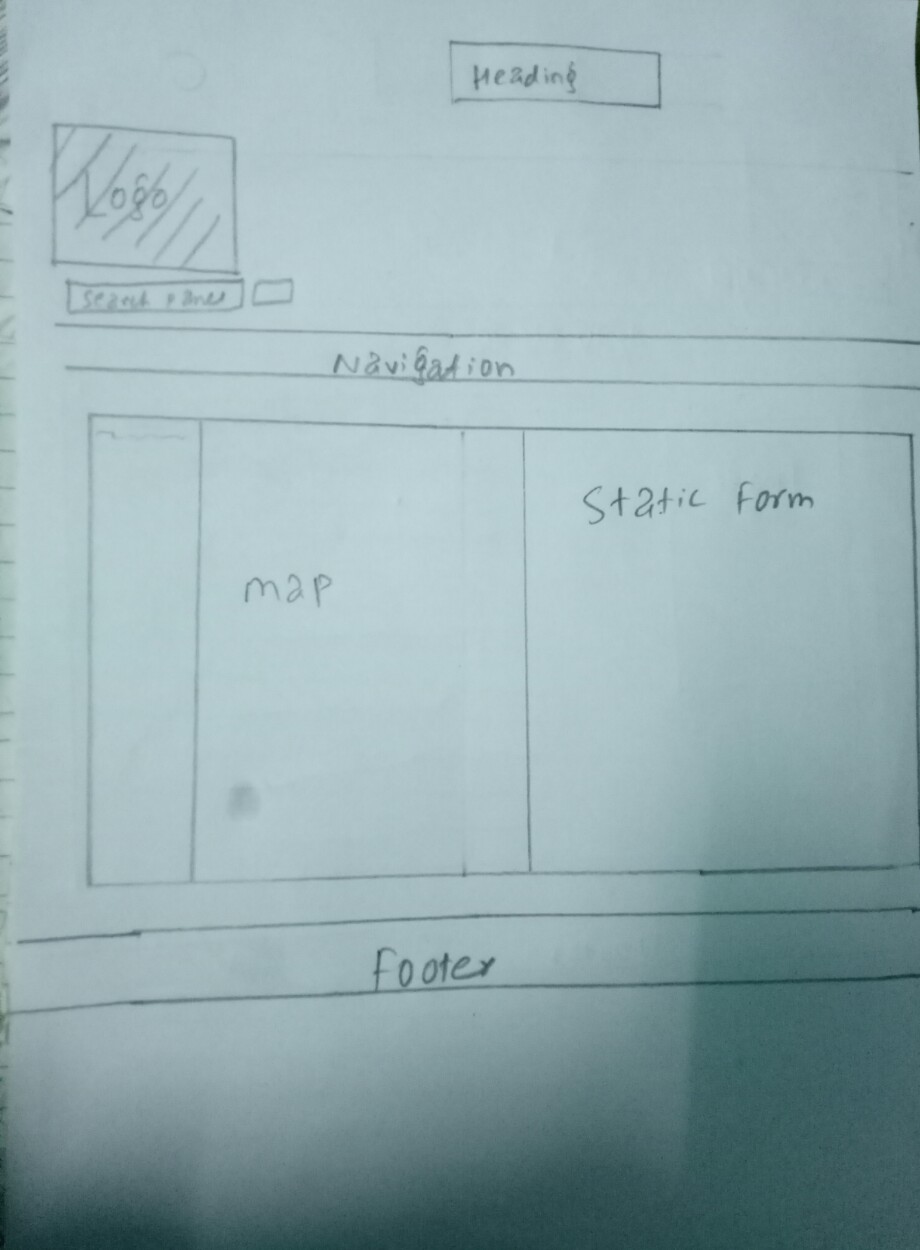 Heading
Logo
Search Panel
Navigation
map
Static Form
Footer